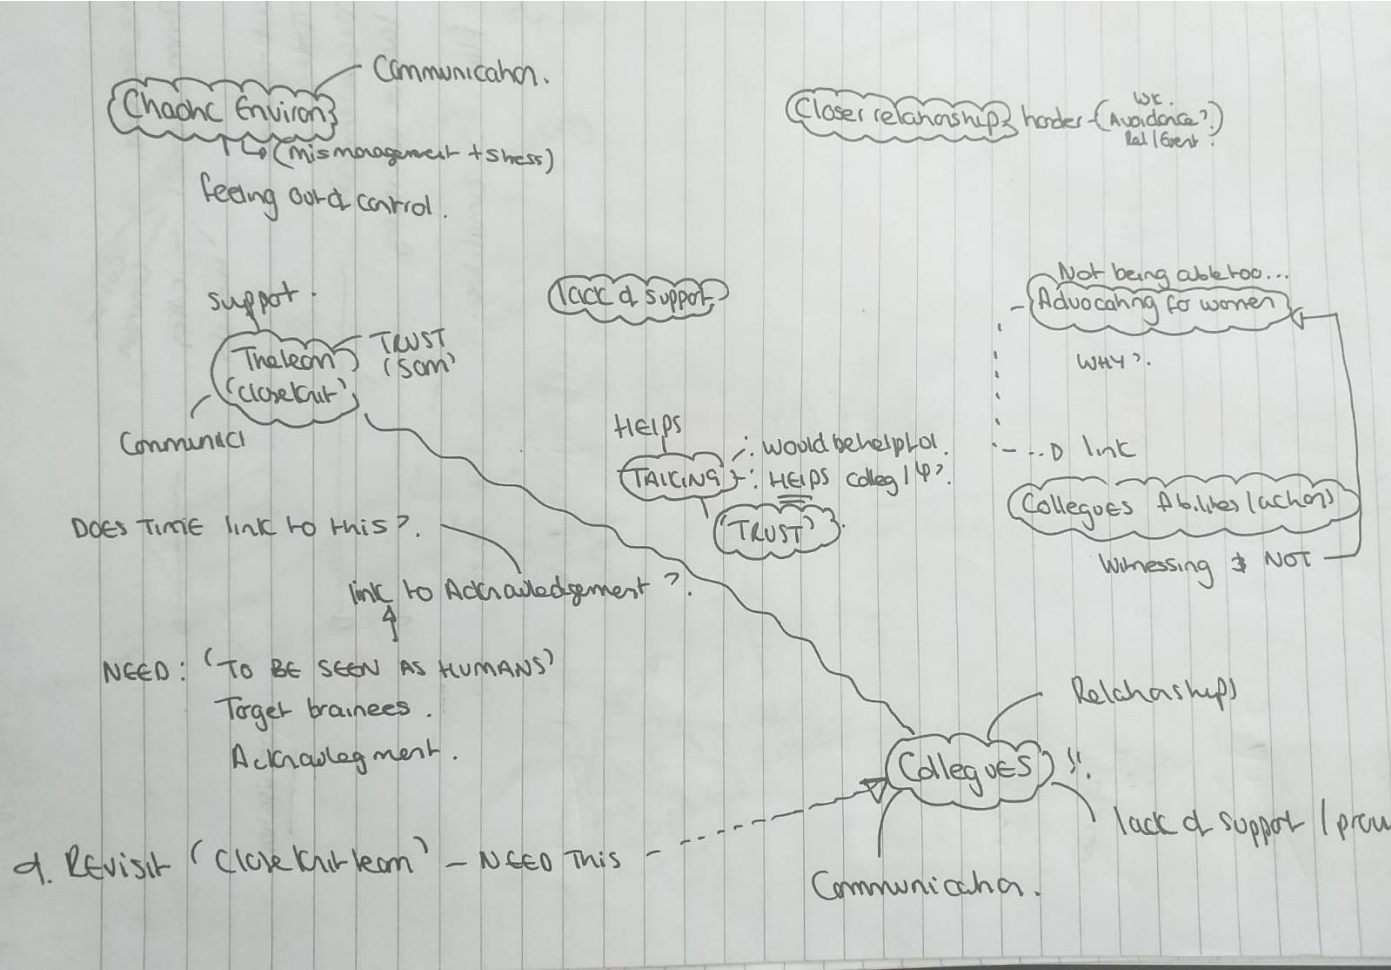 Communication.
Chaotic Environ
(mismanagement + stress)
feeling out of control.
Closer relationships harder - (Avoidance?)
Rel / Event ?
support.
The team
TRUST
(Closeknit)
Communici
lack of support
Not being able too...
Advocating for women
WHY?.
link
Collegues Abilites (actions)
Witnessing & NOT
HELPS
TALKING
: would be helpful.
: HELPS colleg / ψ?.
'TRUST'
DOES TIME link to this?.
link to Acknowledgement ?.
NEED: 'TO BE SEEN AS HUMANS'
Target trainees.
Acknowlegment.
Relationships
Collegues
lack of support /
Communication.
REvisit 'Closeknit team' - NEED This